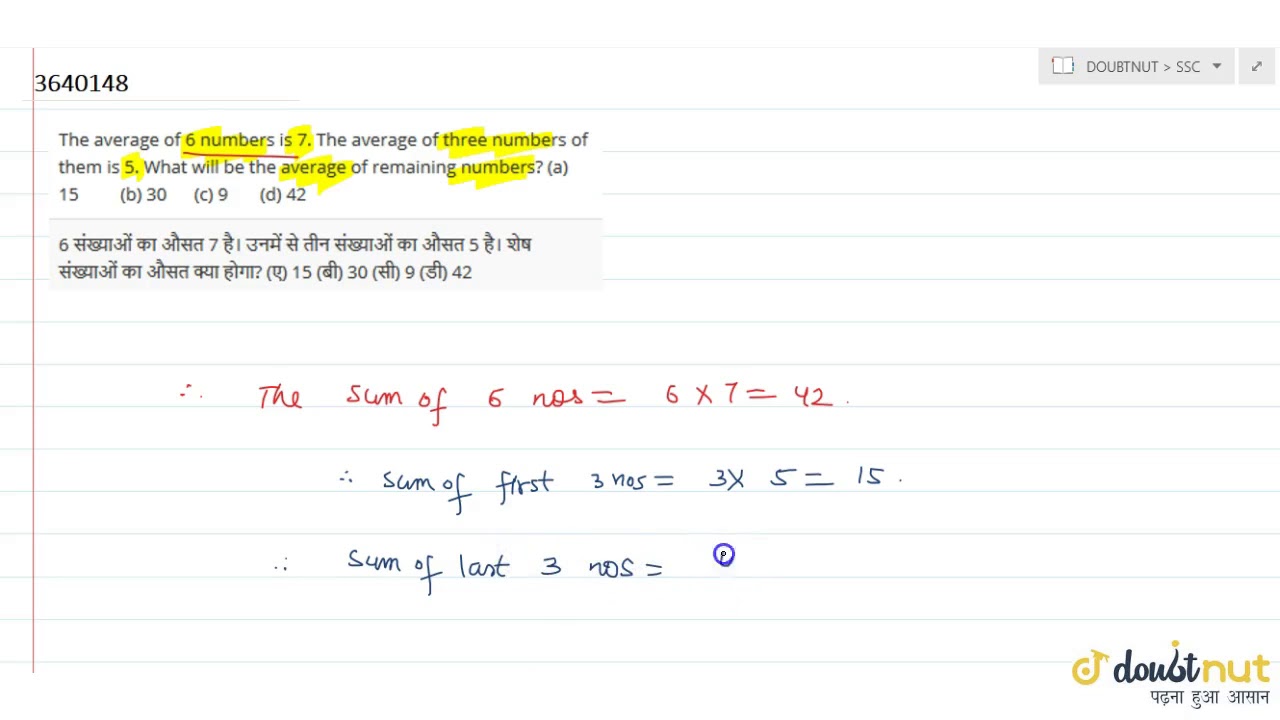 DOUBTNUT > SSC
3640148
The average of 6 numbers is 7. The average of three numbers of
them is 5. What will be the average of remaining numbers? (a)
15 (b) 30 (c) 9 (d) 42
6 संख्याओं का औसत 7 है। उनमें से तीन संख्याओं का औसत 5 है। शेष
संख्याओं का औसत क्या होगा? (ए) 15 (बी) 30 (सी) 9 (डी) 42
∴ The sum of 6 nos = 6 × 7 = 42.
∴ sum of first 3 nos = 3× 5 = 15.
∴ sum of last 3 nos =
doubtnut
पढ़ना हुआ आसान